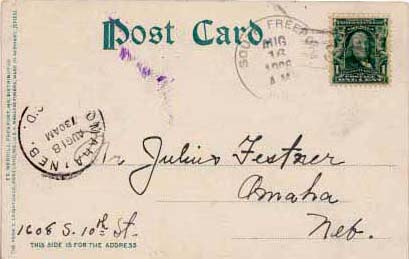 Post Card
AUG
16
1906
A.M.
OMAHA, NEB.
AUG 18
730AM
Mr Julius Festner
Omaha
Neb.
1608 S. 10th St.
THIS SIDE IS FOR THE ADDRESS